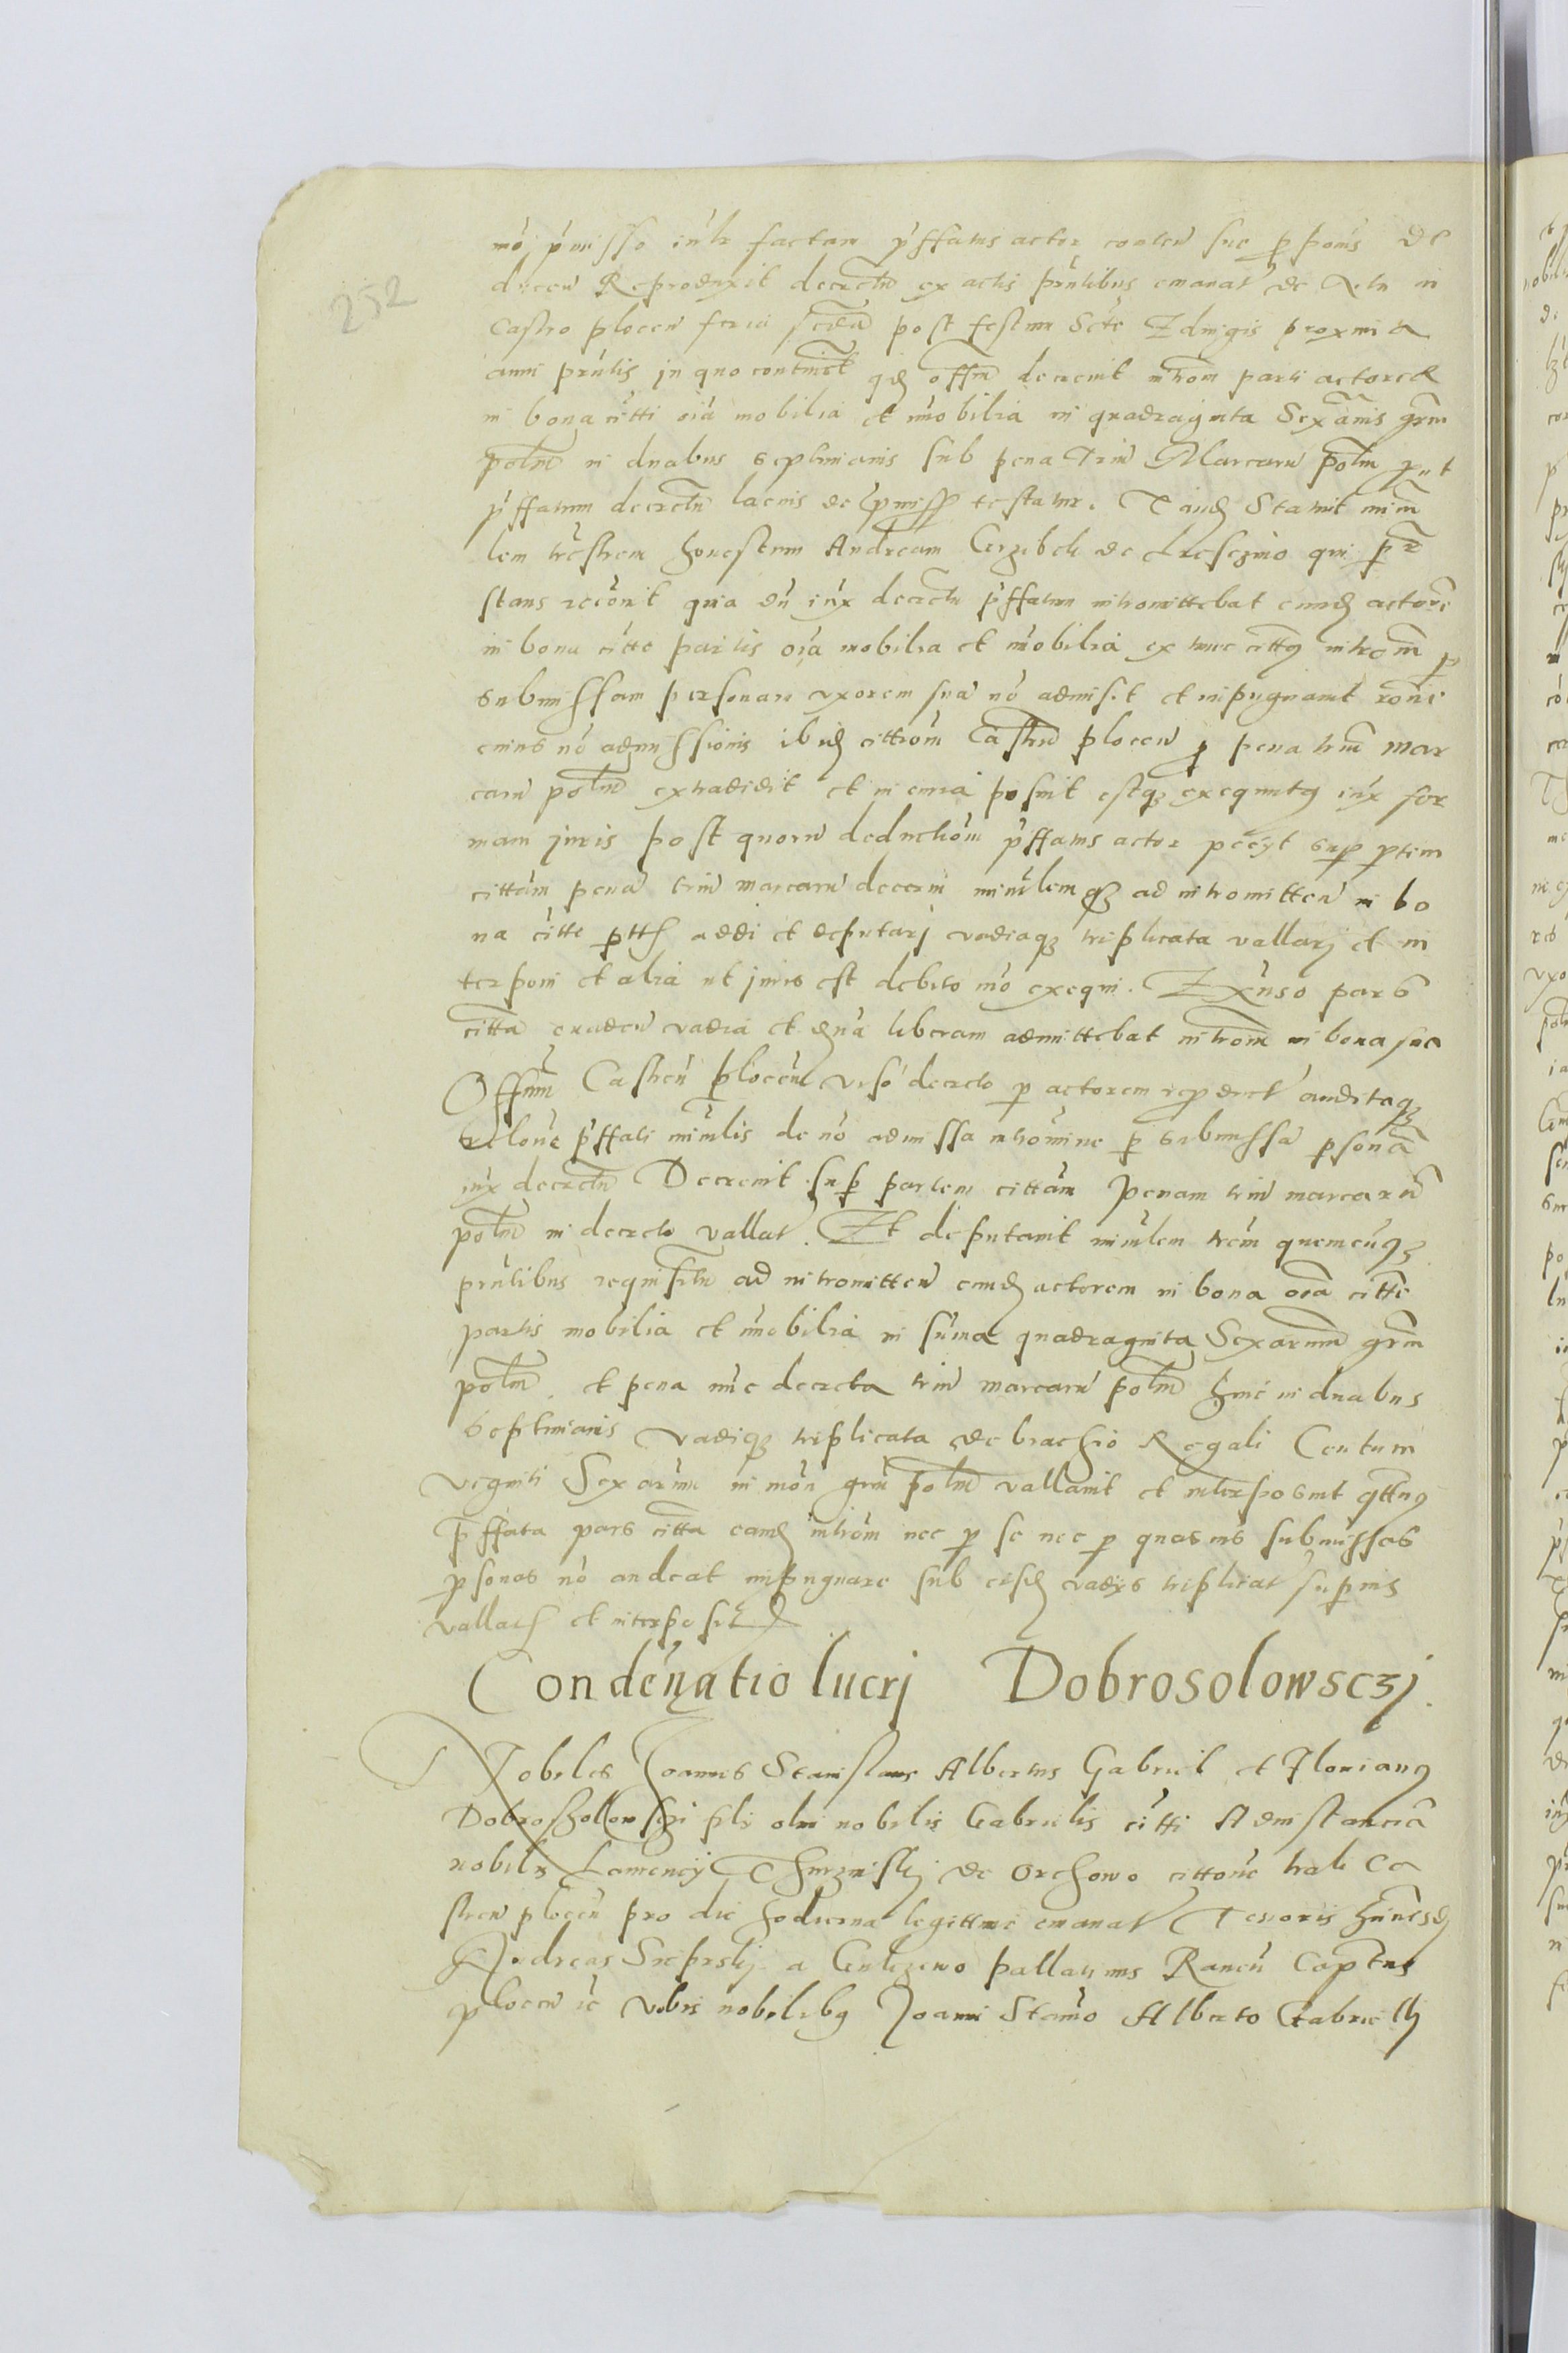 252
mo pmisso intr factam pffatus actor conten sue pponis de
ducen Reproduxit decretu ex actis pntibus emanat de Actu in
Castro plocen feria scda post festum Scte Edvigis proxima
anni pntis in quo continet qd offm decrevit introm parti actoree
in bona citti oia mobilia et imobilia in quadraginta Sexanis grm
polm in duabus septimanis sub pena Triu Marcaru polm put
pffatum decretu lacius de pmiss testatur. Tand Statuit mini
lem trestrem honestum Andream de qui p
stans recovit quia du iux decretu pffatum intromittebat eund actore
in bona citte partis oia mobilia et imobilia ex tunc citt introm p
submissam personam uxorem sua no admisit et inpugnavit rone
cuius no admissionis ibid cittrom Castru plocen p pena triu mar
caru polm extradidit et in curia posuit estq exequut iux for
mam juris post quoru deductiom pffatus actor peiyt sup ptem
cittam pena triu marcaru decerni minrlemq ad intromitten in bo
na citte ptts addi et deputarj vadiaq triplicata vallarj et in
terponi et alia ut juris est debito mo exequi. Exnso pars
citta evaden vadia et dna liberam admittebat introm in bona sua
Offum Castren plocen viso decreto p actorem reproduct auditaq
relone pffati minrlis de no admissa intromine p submissa psona
iux decretu Decrevit sup partem cittam penam triu marcaru
polm in decreto vallat. Et deputavit minrlem trem quemcuq
pntibus requisitu ad intromitten eund actorem in bona oia citte
partis mobilia et imobilia in suma quadraginta Sexarum grm
polm. et pena nuc decreta triu marcaru polm hinc in duabus
septimanis vadiaq triplicata de brachio Regali Centum
viginti Sexarum in mon grm polm vallavit et interposuit qttng
pffata pars citta eamd introm nec p se nec p quasvis submissas
psonas no audeat inpugnare sub eisd vadiis triplicat supius
vallats et interposit
Condenatio lucrj Dobrosolowsczj.
Nobiles Joannes Stanislaus Albertus Gabriel et Florianus
Dobroshollowsczi flii olim nobilis Gabrielis citti Ad instancia
nobilis Laurencij de Orchowo cittone trali Ca
stren plocen pro die hodierna legittime emanat Tenoris hmoesd
Andreas Srepsky a pallatinus Raven Captus
plocen ic vobis nobilibus Joanni Stanio Alberto Gabrielj